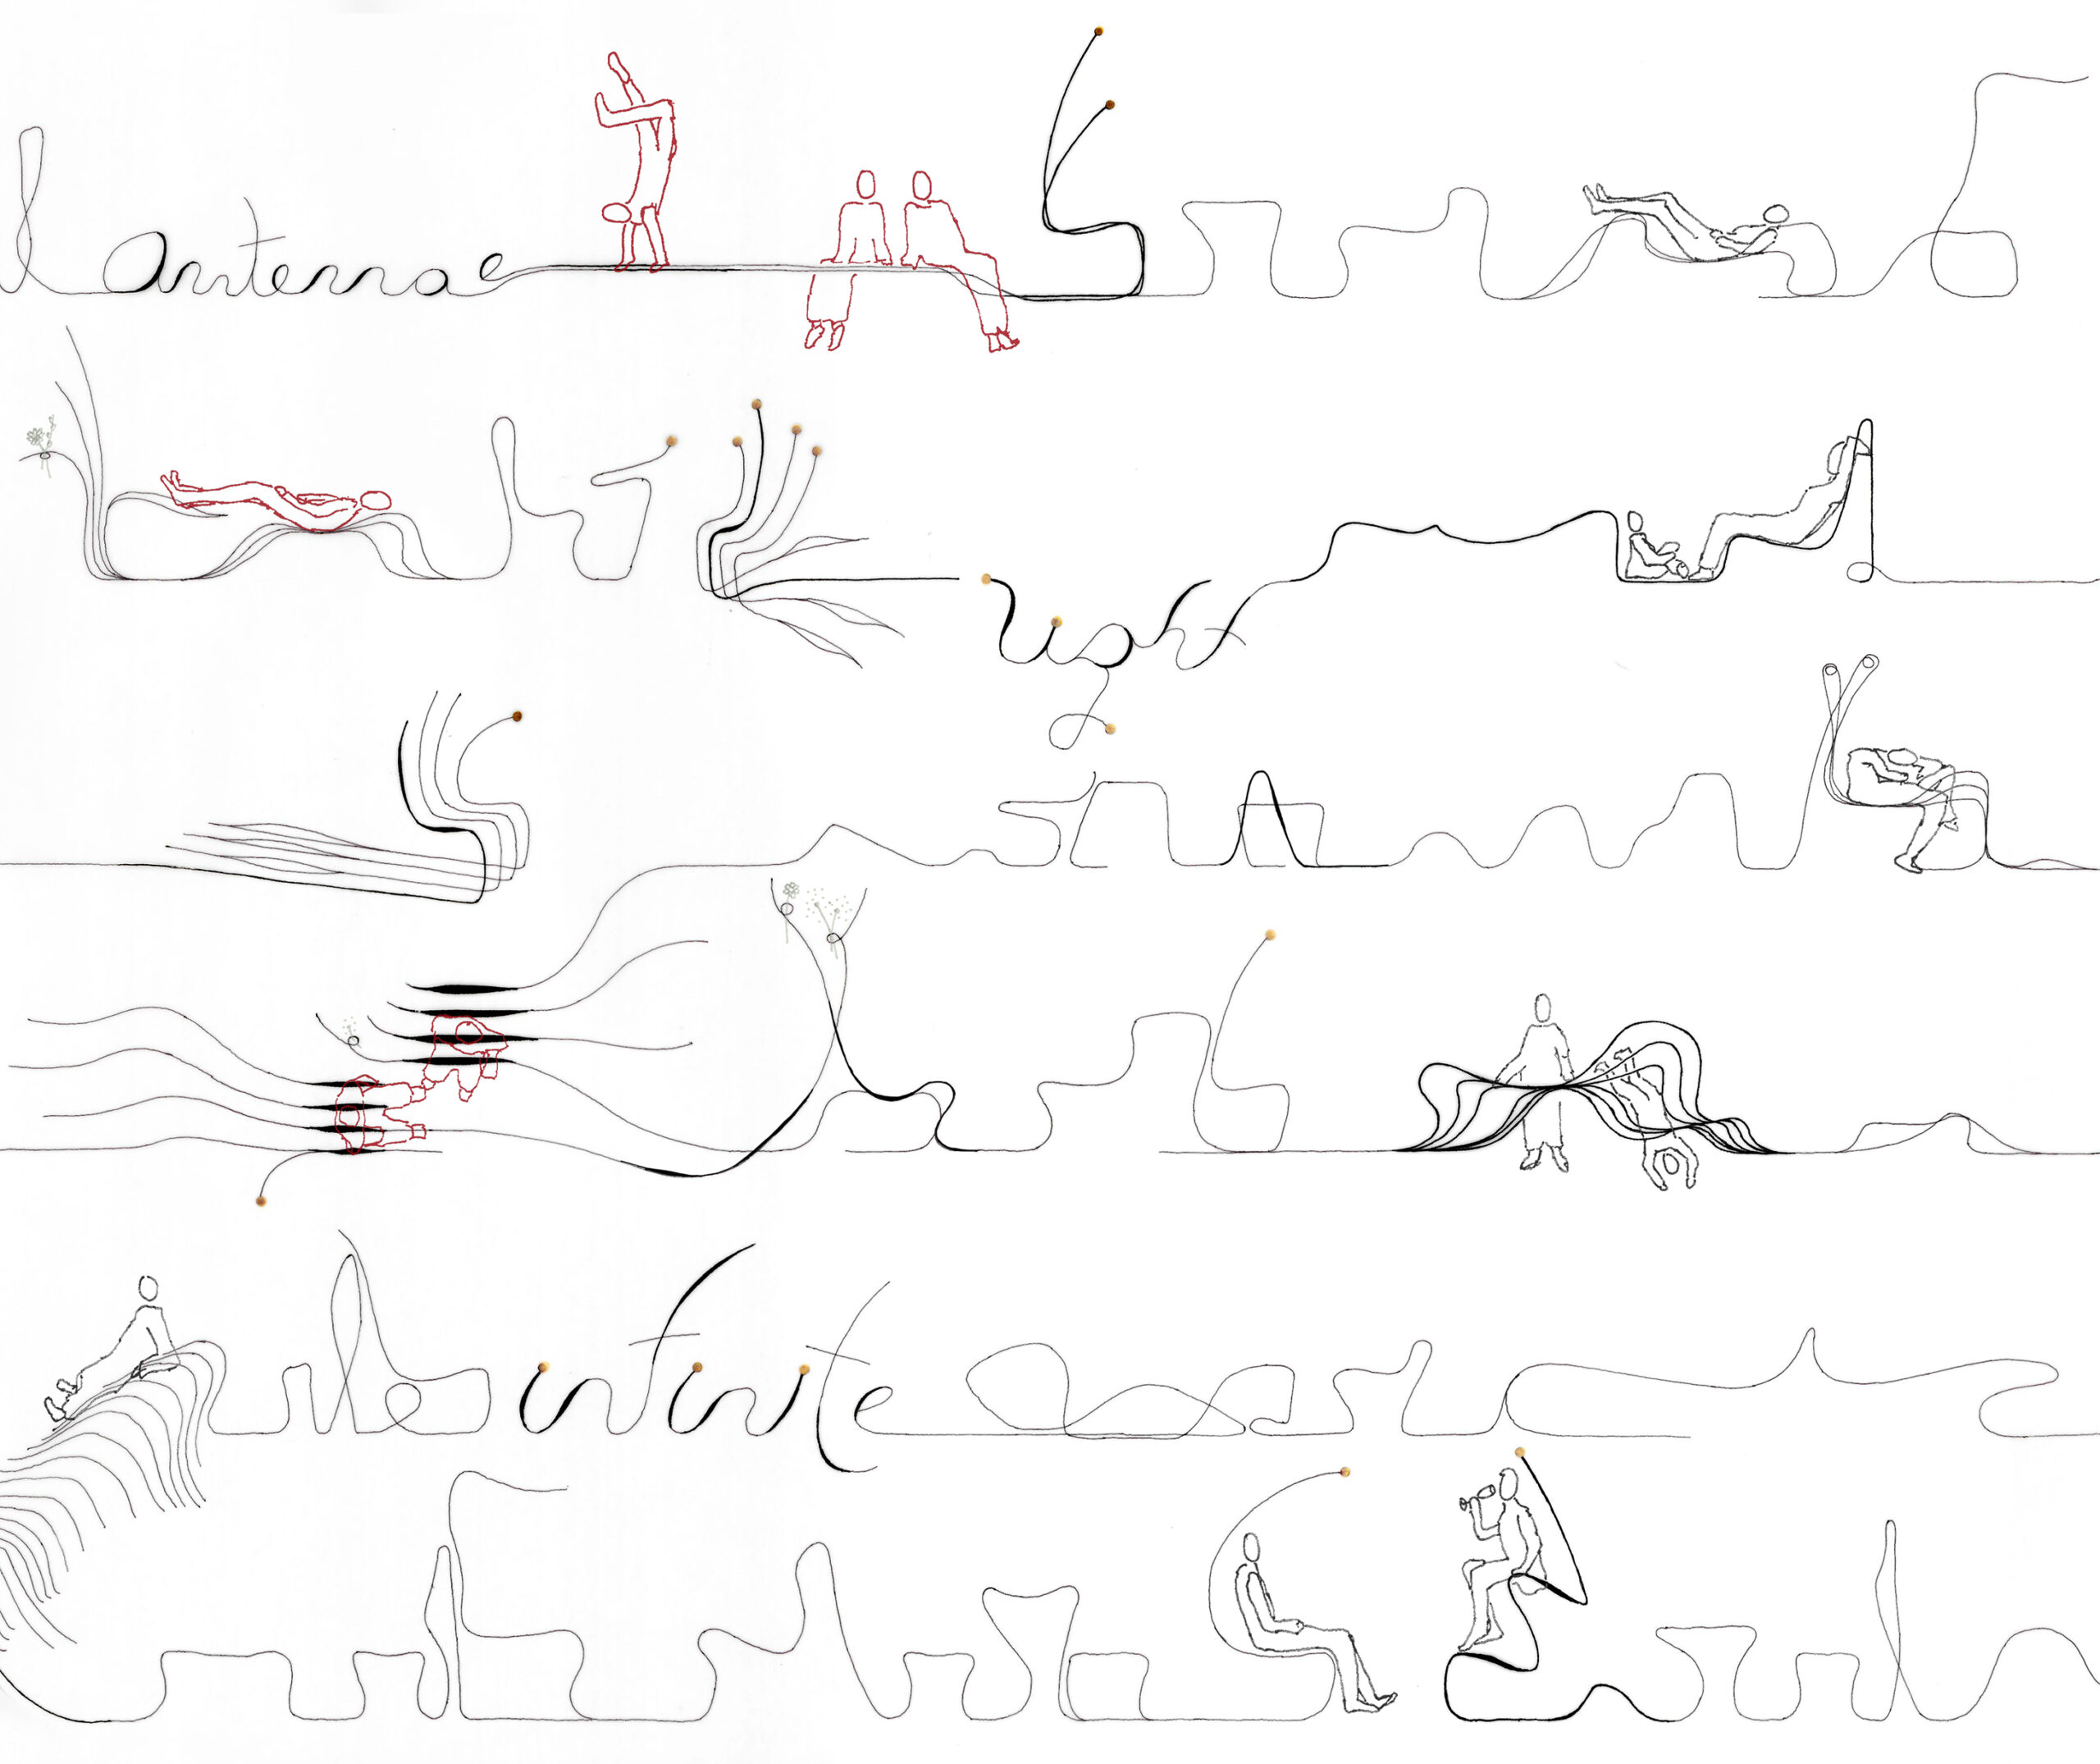 antennae
light
infinite